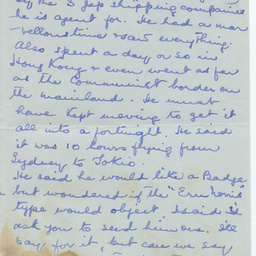 of the 3 Jap shipping companies
he is agent for. He had a man
& saw everything
Also spent a day or so in
Hong Kong & even went as far
as the Communist border on
the mainland. He must
have kept moving to get it
all into a fortnight. He said
it was 10 hours flying from
Sydney to Tokio.
He said he would like a Badge
but wondered if the
type would object I said I'd
ask you to send him one. I'll
pay for it, but can we say